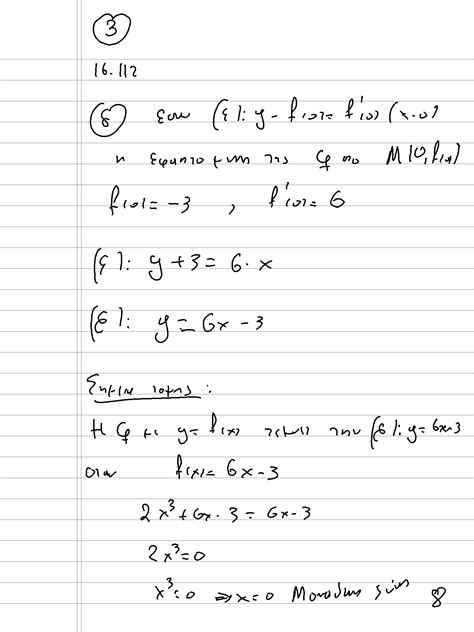 3
16.112
δ Εστω (ε): y - f(0) = f'(0) (x-0)
η εφαπτομενη της Cf στο M(0, f(0))
f(0) = -3 , f'(0) = 6
(ε): y + 3 = 6 · x
(ε): y = 6x - 3
Σημεια τομης :
Η Cf με y = f(x) τεμνει την (ε): y = 6x-3
οταν f(x) = 6x - 3
2x³ + 6x - 3 = 6x - 3
2x³ = 0
x³ = 0 ⇒ x = 0 Μοναδικη 8